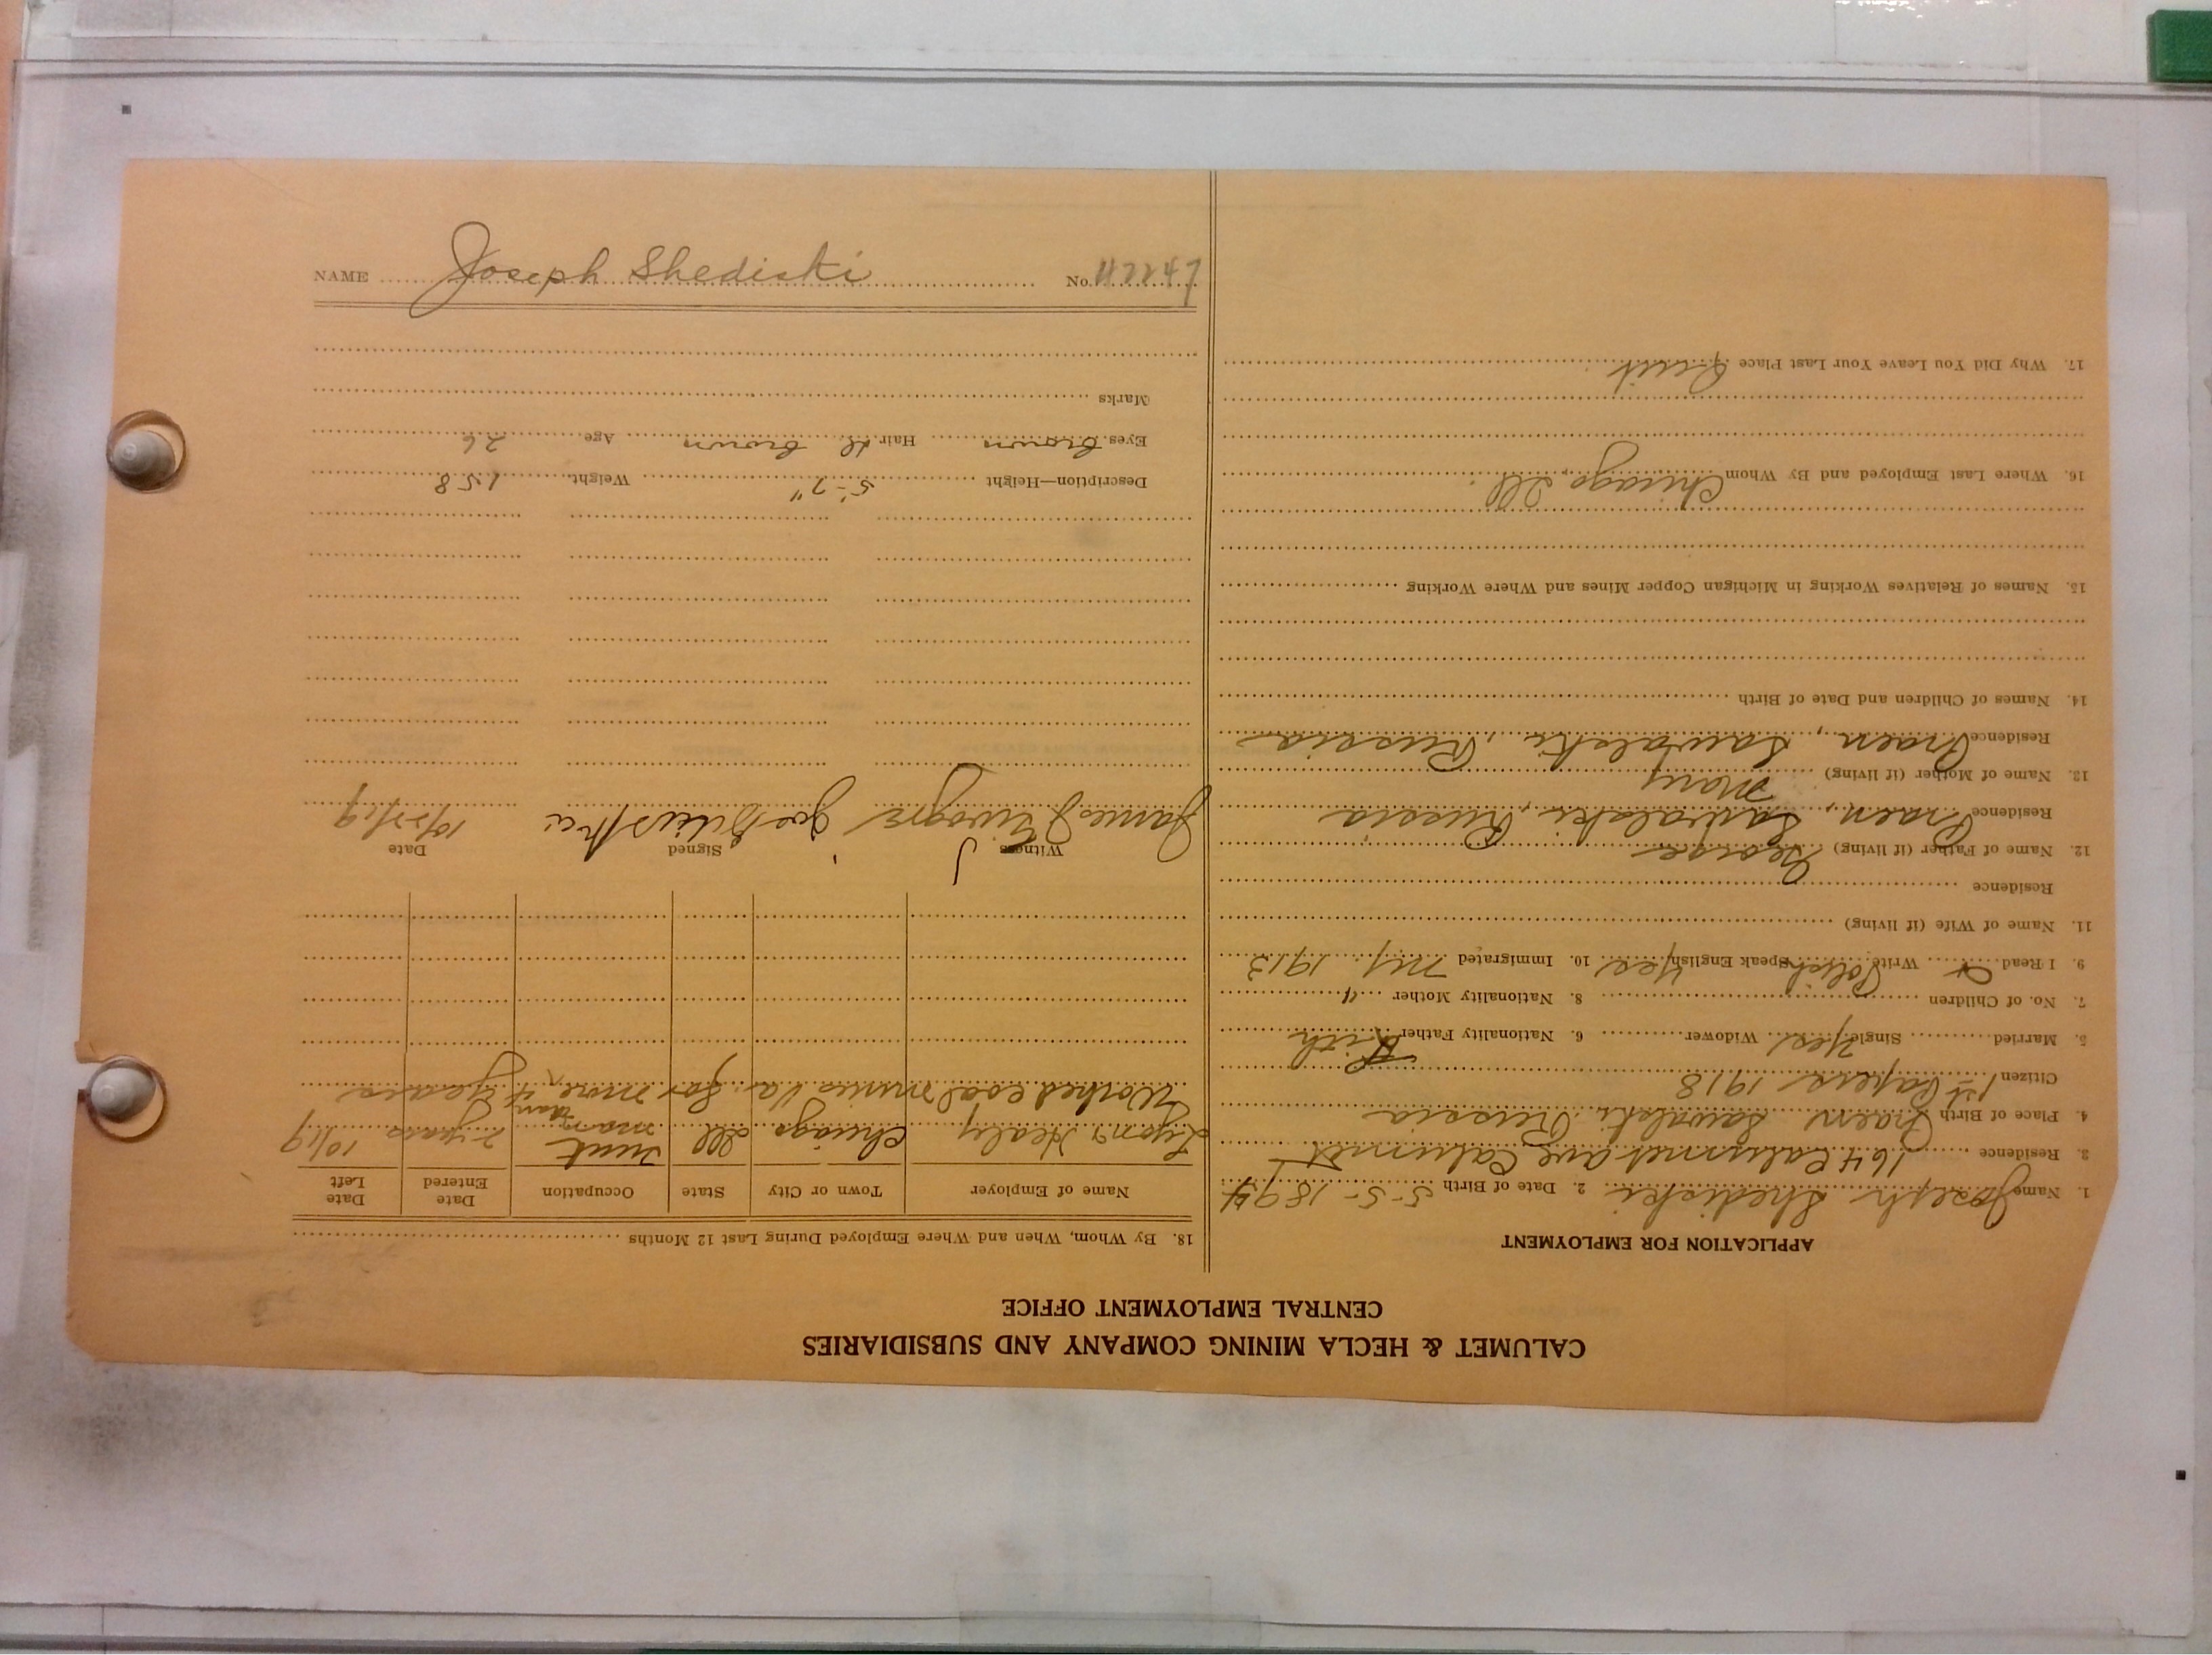 CALUMET & HECLA MINING COMPANY AND SUBSIDIARIES
CENTRAL EMPLOYMENT OFFICE
APPLICATION FOR EMPLOYMENT
1. Name Joseph Shediski 2. Date of Birth 5-5-1894
3. Residence 164 Calumet ave Calumet
4. Place of Birth Suwalski, Russia
Citizen 1st Papers 1918
5. Married Single Yes Widower 6. Nationality Father Lith
7. No. of Children 8. Nationality Mother "
9. I Read Write Polish Speak English Yes 10. Immigrated NY 1913
11. Name of Wife (if living)
Residence
12. Name of Father (if living) George
Residence Suwalski, Russia
13. Name of Mother (if living) Mary
Residence Suwalski, Russia
14. Names of Children and Date of Birth
15. Names of Relatives Working in Michigan Copper Mines and Where Working
16. Where Last Employed and By Whom Chicago, Ill
17. Why Did You Leave Your Last Place Quit
18. By Whom, When and Where Employed During Last 12 Months
Name of Employer Town or City State Occupation Date Entered Date Left
Lyon & Healy Chicago Ill man 2 years 10/19
Worked coal mines Va. for more than 4 years
Witness Signed Date
James 10/27/19
Description—Height 5'-7" Weight 158
Eyes brown Hair brown Age 26
Marks
NAME Joseph Shediski No. 47247